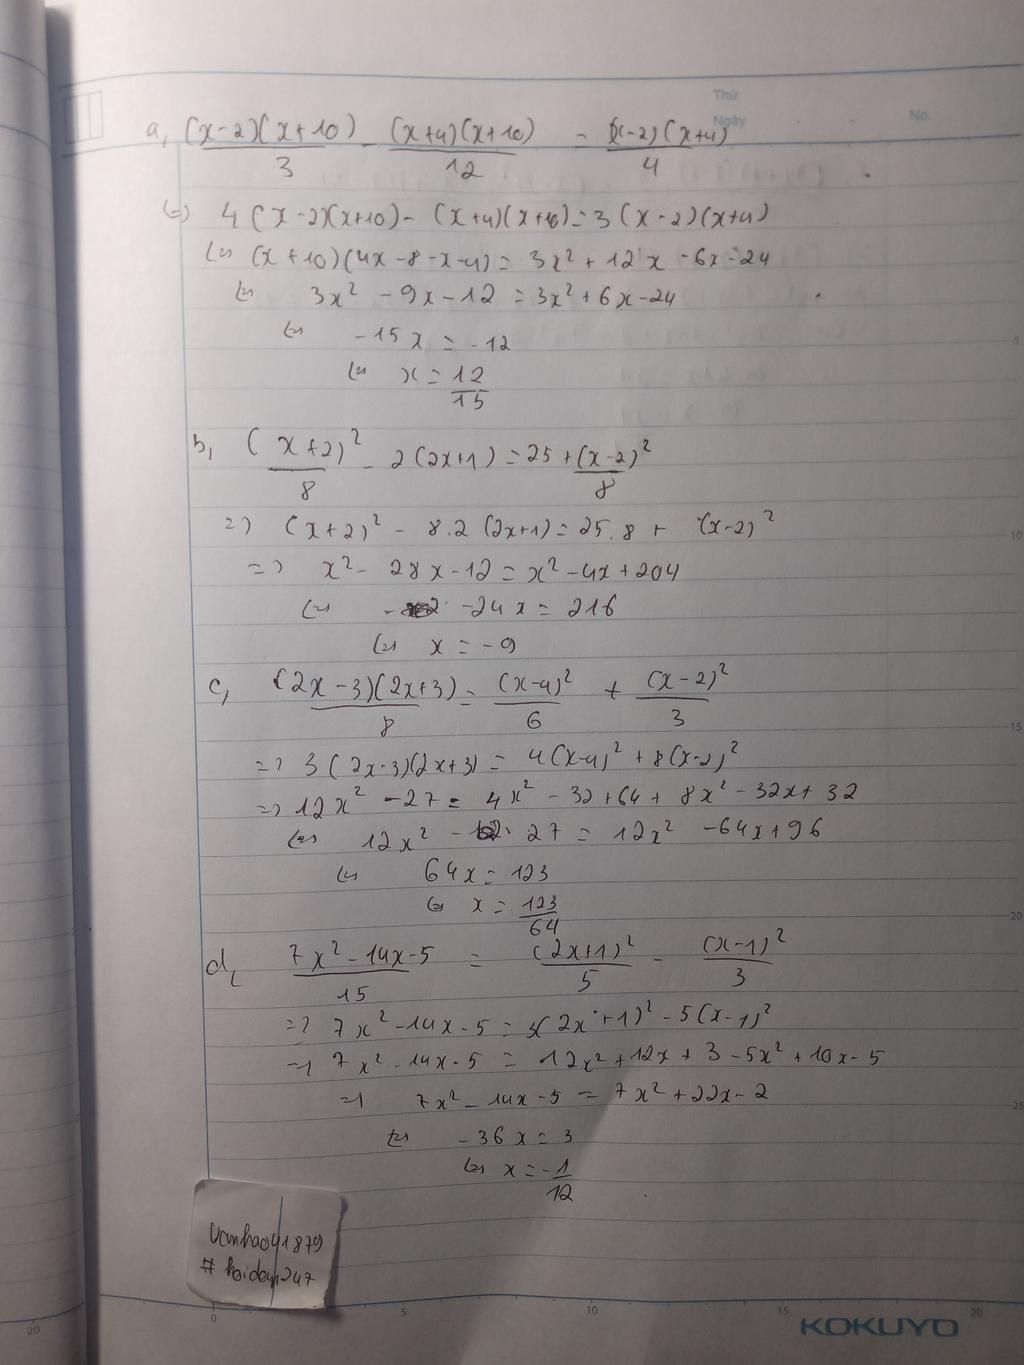 Thứ
Ngày
No.
a, (x-2)(x+10)/3 - (x+4)(x+10)/12 = (x-2)(x+4)/4
(=) 4(x-2)(x+10) - (x+4)(x+10) = 3(x-2)(x+4)
(=) (x+10)(4x-8-x-4) = 3x² + 12x - 6x - 24
(=) 3x² - 9x - 12 = 3x² + 6x - 24
(=) -15x = -12
(=) x = 12/15
b, (x+2)²/8 - 2(2x+1) = 25 + (x-2)²/8
=> (x+2)² - 8.2(2x+1) = 25.8 + (x-2)²
=> x² - 28x - 12 = x² - 4x + 204
(=) -24x = 216
(=) x = -9
c, (2x-3)(2x+3)/8 = (x-4)²/6 + (x-2)²/3
=> 3(2x-3)(2x+3) = 4(x-4)² + 8(x-2)²
=> 12x² - 27 = 4x² - 32 + 64 + 8x² - 32x + 32
(=) 12x² - 27 = 12x² - 64x + 96
(=) 64x = 123
(=) x = 123/64
d, 7x² - 14x - 5/15 = (2x+1)²/5 - (x-1)²/3
=> 7x² - 14x - 5 = 3(2x+1)² - 5(x-1)²
=> 7x² - 14x - 5 = 12x² + 12x + 3 - 5x² + 10x - 5
=> 7x² - 14x - 5 = 7x² + 22x - 2
(=) -36x = 3
(=) x = -1/12
# hoidap247
KOKUYO
5
10
15
20
25
0 5 10 15 20
20